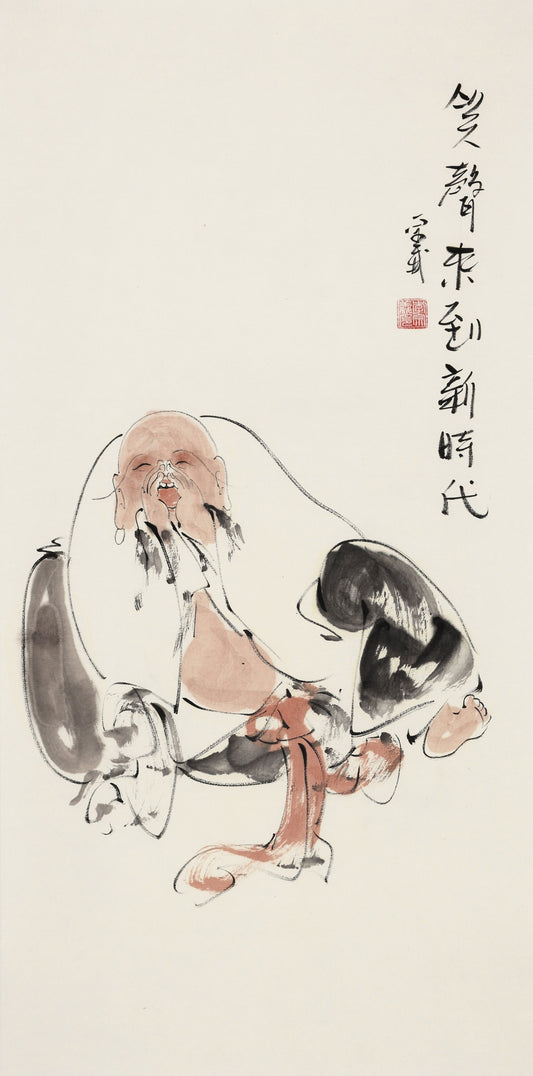 笑聲來到新時代